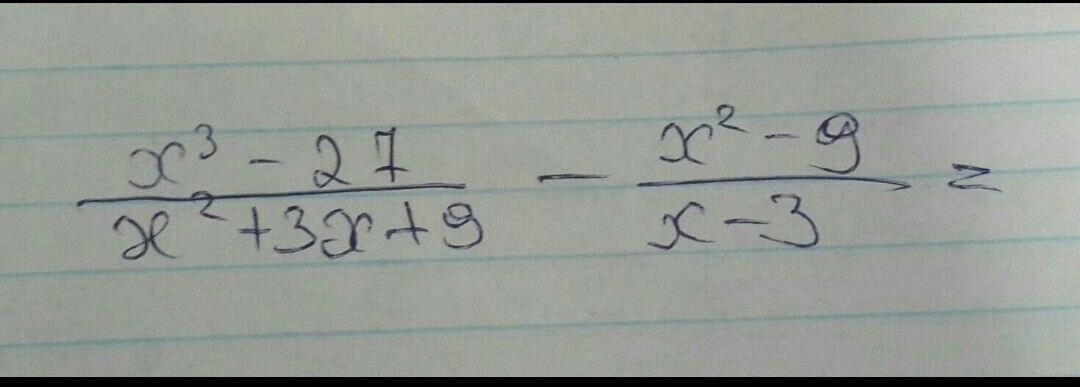 (x³ - 27)/(x² + 3x + 9) - (x² - 9)/(x - 3) =